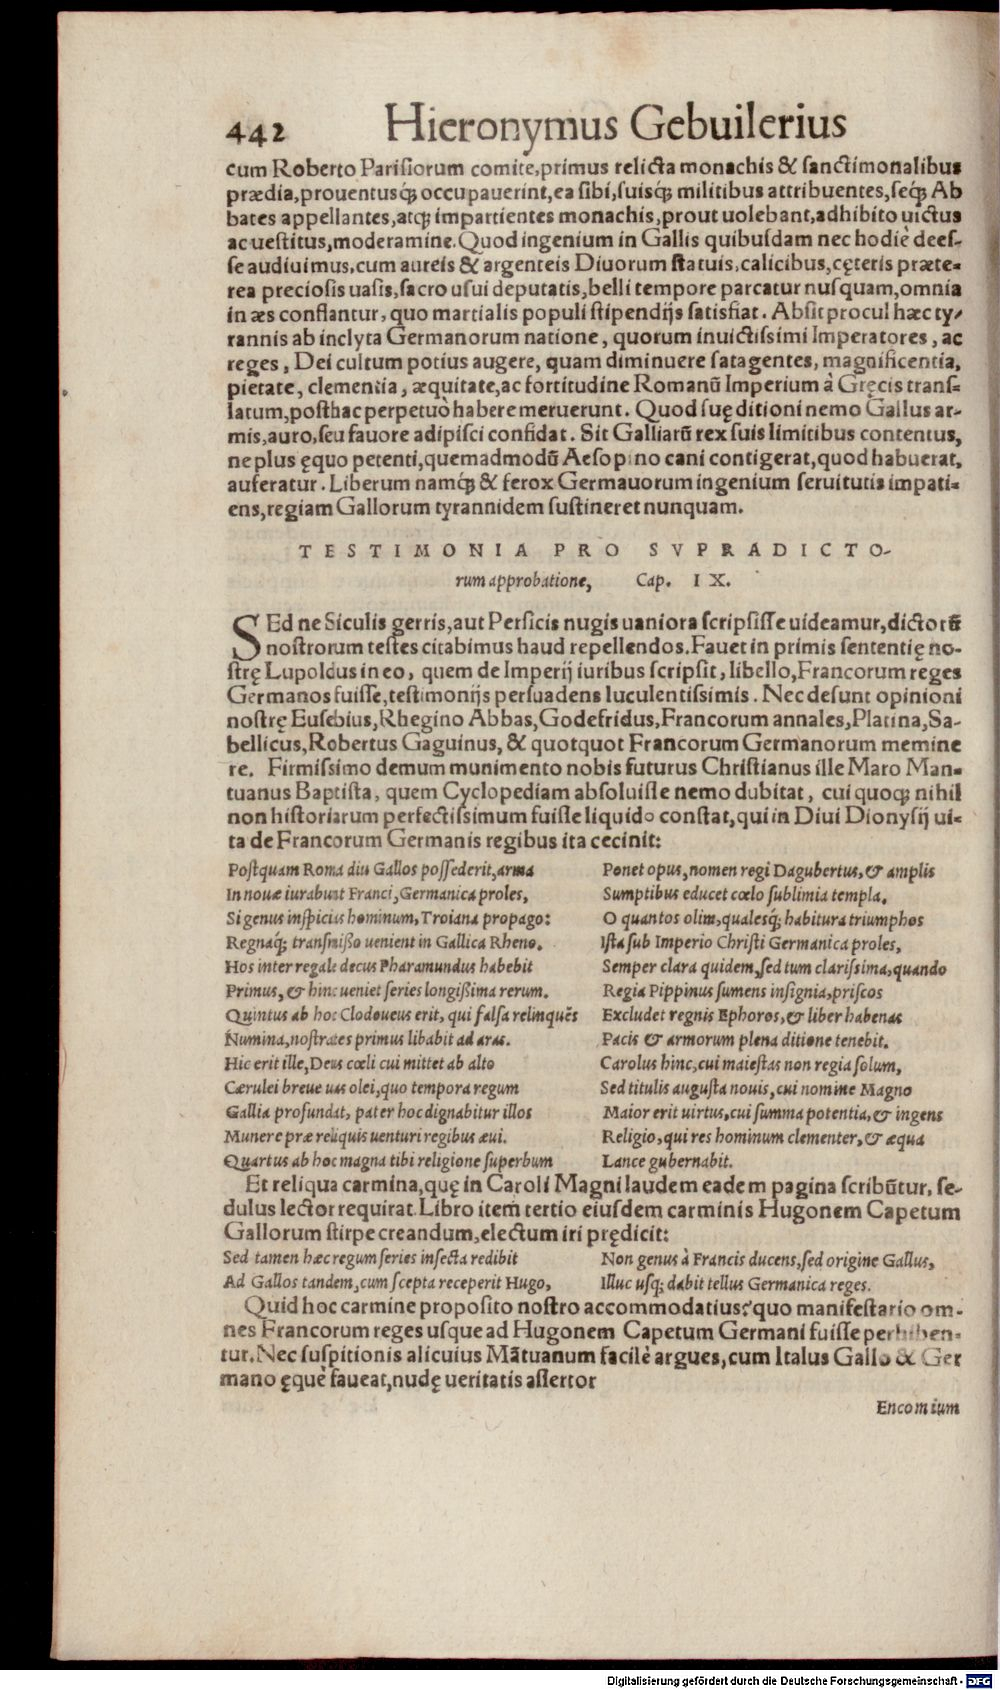 442 Hieronymus Gebuilerius
cum Roberto Parisiorum comite, primus relicta monachis & sanctimonalibus
prædia, prouentusq́; occupauerint, ea sibi, suisq́; militibus attribuentes, seq́; Ab
bates appellantes, atq; impartientes monachis, prout uolebant, adhibito uictus
ac uestitus, moderamine. Quod ingenium in Gallis quibusdam nec hodiè dees-
se audiuimus, cum aureis & argenteis Diuorum statuis, calicibus, cęteris præte-
rea preciosis uasis, sacro usui deputatis, belli tempore parcatur nusquam, omnia
in æs conflantur, quo martialis populi stipendijs satisfiat. Absit procul hæc ty-
rannis ab inclyta Germanorum natione, quorum inuictissimi Imperatores, ac
reges, Dei cultum potius augere, quam diminuere satagentes, magnificentia,
pietate, clementia, æquitate, ac fortitudine Romanū Imperium à Gręcis trans-
latum, posthac perpetuò habere meruerunt. Quod suę ditioni nemo Gallus ar-
mis, auro, seu fauore adipisci confidat. Sit Galliarū rex suis limitibus contentus,
ne plus ęquo petenti, quemadmodū Aesopino cani contigerat, quod habuerat,
auferatur. Liberum namq́; & ferox Germauorum ingenium seruitutis impati-
ens, regiam Gallorum tyrannidem sustineret nunquam.
TESTIMONIA PRO SVPRADICTO-
rum approbatione, Cap. IX.
SEd ne Siculis gerris, aut Persicis nugis uaniora scripsisse uideamur, dictorū
nostrorum testes citabimus haud repellendos. Fauet in primis sententię no-
strę Lupoldus in eo, quem de Imperij iuribus scripsit, libello, Francorum reges
Germanos fuisse, testimonijs persuadens luculentissimis. Nec desunt opinioni
nostrę Eusebius, Rhegino Abbas, Godefridus, Francorum annales, Platina, Sa-
bellicus, Robertus Gaguinus, & quotquot Francorum Germanorum memine
re. Firmissimo demum munimento nobis futurus Christianus ille Maro Man-
tuanus Baptista, quem Cyclopediam absoluisse nemo dubitat, cui quoq; nihil
non historiarum perfectissimum fuisse liquido constat, qui in Diui Dionysij ui-
ta de Francorum Germanis regibus ita cecinit:
Postquam Roma diu Gallos possederit, arma
In nouæ iurabunt Franci, Germanica proles,
Si genus inspicius hominum, Troiana propago:
Regnaq́; transmißo uenient in Gallica Rheno.
Hos inter regale decus Pharamundus habebit
Primus, & hinc ueniet series longißima rerum.
Quintus ab hoc Clodoueus erit, qui falsa relinquēs
Numina, nostrates primus libabit ad aras.
Hic erit ille, Deus cœli cui mittet ab alto
Cærulei breue uas olei, quo tempora regum
Gallia profundat, pater hoc dignabitur illos
Munere præ reliquis uenturi regibus æui.
Quartus ab hoc magna tibi religione superbum
Ponet opus, nomen regi Dagubertus, & amplis
Sumptibus educet cœlo sublimia templa.
O quantos olim, qualesq́; habitura triumphos
Ista sub Imperio Christi Germanica proles,
Semper clara quidem, sed tum clarissima, quando
Regia Pippinus sumens insignia, priscos
Excludet regnis Ephoros, & liber habenas
Pacis & armorum plena ditione tenebit.
Carolus hinc, cui maiestas non regia solum,
Sed titulis augusta nouis, cui nomine Magno
Maior erit uirtus, cui summa potentia, & ingens
Religio, qui res hominum clementer, & æqua
Lance gubernabit.
Et reliqua carmina, quę in Caroli Magni laudem eadem pagina scribūtur, se-
dulus lector requirat. Libro item tertio eiusdem carminis Hugonem Capetum
Gallorum stirpe creandum, electum iri prędicit:
Sed tamen hæc regum series insecta redibit
Ad Gallos tandem, cum scepta receperit Hugo,
Non genus à Francis ducens, sed origine Gallus,
Illuc usq; dabit tellus Germanica reges.
Quid hoc carmine proposito nostro accommodatius? quo manifestario om-
nes Francorum reges usque ad Hugonem Capetum Germani fuisse perhiben-
tur. Nec suspitionis alicuius Mātuanum facilè argues, cum Italus Gallo & Ger
mano ęquè faueat, nudę ueritatis assertor
Encomium
Digitalisierung gefördert durch die Deutsche Forschungsgemeinschaft - DFG